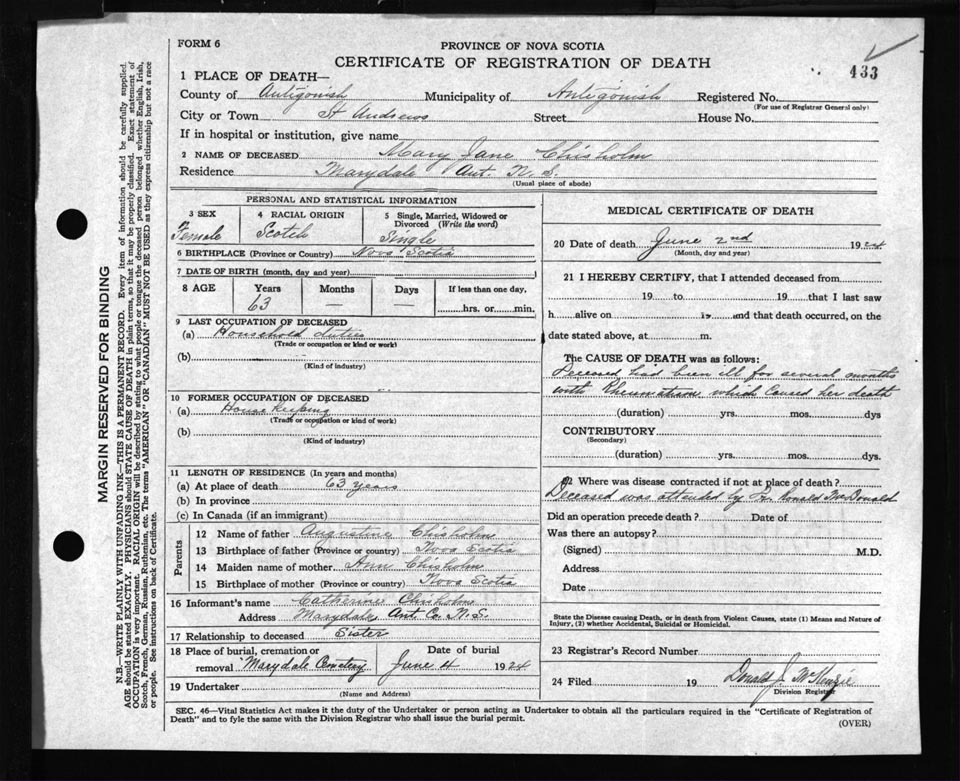 FORM 6
PROVINCE OF NOVA SCOTIA
CERTIFICATE OF REGISTRATION OF DEATH
433
1 PLACE OF DEATH—
County of Antigonish Municipality of Antigonish Registered No.
(For use of Registrar General only)
City or Town St Andrews Street House No.
If in hospital or institution, give name
2 NAME OF DECEASED Mary Jane Chisholm
Residence Marydale Ant. N. S.
(Usual place of abode)
PERSONAL AND STATISTICAL INFORMATION
3 SEX 4 RACIAL ORIGIN 5 Single, Married, Widowed or Divorced (Write the word)
Female Scotch Single
6 BIRTHPLACE (Province or Country) Nova Scotia
7 DATE OF BIRTH (month, day and year)
8 AGE Years Months Days If less than one day,
63 — — hrs. or min.
9 LAST OCCUPATION OF DECEASED
(a) Household duties
(Trade or occupation or kind or work)
(b)
(Kind of industry)
10 FORMER OCCUPATION OF DECEASED
(a) House Keeping
(Trade or occupation or kind of work)
(b)
(Kind of industry)
11 LENGTH OF RESIDENCE (In years and months)
(a) At place of death 63 years
(b) In province
(c) In Canada (if an immigrant)
Parents
12 Name of father Augustine Chisholm
13 Birthplace of father (Province or country) Nova Scotia
14 Maiden name of mother Ann Chisholm
15 Birthplace of mother (Province or country) Nova Scotia
16 Informant's name Catherine Chisholm
Address Marydale, Ant. Co. N.S.
17 Relationship to deceased Sister
18 Place of burial, cremation or removal Marydale Cemetery Date of burial June 4 1924
19 Undertaker
(Name and Address)
MEDICAL CERTIFICATE OF DEATH
20 Date of death June 2nd 1924
(Month, day and year)
21 I HEREBY CERTIFY, that I attended deceased from
19 to 19 that I last saw
h alive on 19 and that death occurred, on the
date stated above, at m.
The CAUSE OF DEATH was as follows:
Deceased had been ill for several months
with Rheumatism which caused her death
(duration) yrs. mos. dys
CONTRIBUTORY
(Secondary)
(duration) yrs. mos. dys.
22 Where was disease contracted if not at place of death?
Deceased was attended by Fr. Ronald McDonald
Did an operation precede death? Date of
Was there an autopsy?
(Signed) M.D.
Address
Date
State the Disease causing Death, or in death from Violent Causes, state (1) Means and Nature of
Injury, (2) whether Accidental, Suicidal or Homicidal.
23 Registrar's Record Number
24 Filed 19 Donald J. McKenzie
Division Registrar
SEC. 46—Vital Statistics Act makes it the duty of the Undertaker or person acting as Undertaker to obtain all the particulars required in the "Certificate of Registration of
Death" and to fyle the same with the Division Registrar who shall issue the burial permit.
(OVER)
MARGIN RESERVED FOR BINDING
N.B.—WRITE PLAINLY WITH UNFADING INK—THIS IS A PERMANENT RECORD. Every item of information should be carefully supplied.
AGE should be stated EXACTLY. PHYSICIANS should STATE CAUSE OF DEATH in plain terms, so that it may be properly classified. Exact statement of
OCCUPATION is very important. RACIAL ORIGIN will be described by stating to what people or tongue the deceased person belonged whether English, Irish,
Scotch, French, German, Russian, Ruthenian, etc. The terms "AMERICAN" OR "CANADIAN" MUST NOT BE USED as they express citizenship but not a race
or people. See instructions on back of Certificate.